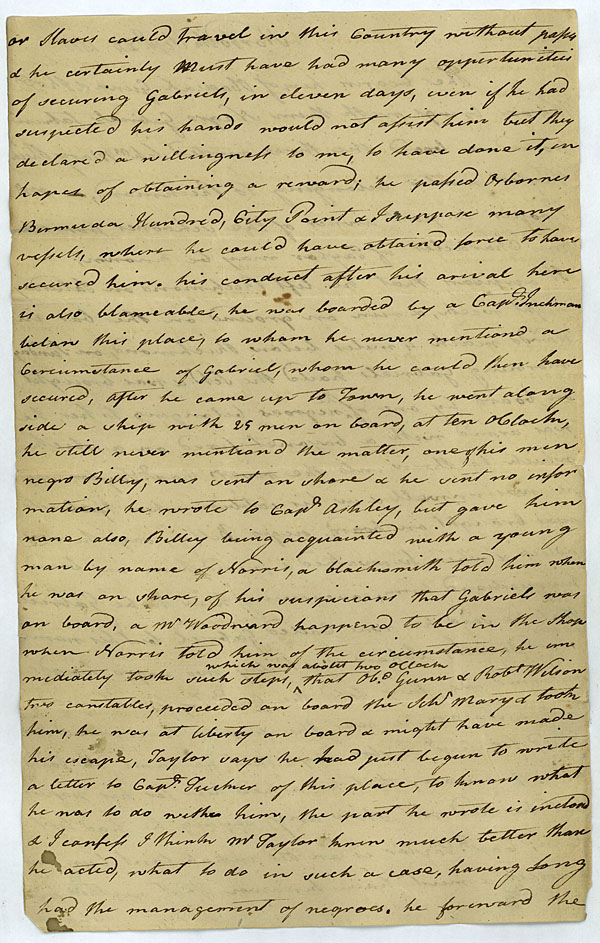 or Slaves could travel in this Country without pass
& he certainly Must have had many opportunities
of securing Gabriels, in eleven days, even if he had
suspected his hands would not assist him but they
declared a willingness to me, to have done it, in
hopes of obtaining a reward; he passed Osbornes
Bermuda Hundred, City Point & I suppose many
vessels, where he could have obtaind force to have
secured him. his conduct after his arival here
is also blameable, he was boarded by a Capn. Inchman
below this place, to whom he never mentiond a
Circumstance of Gabriel, whom he could then have
secured, after he came up to Town, he went along
side a ship with 25 men on board, at ten OClock,
he still never mentiond the matter, one of his men
negro Billey, was sent on shore & he sent no infor
mation, he wrote to Capn. Ashley, but gave him
none also, Billey being acquainted with a young
man by name of Norris, a blacksmith told him when
he was on shore, of his suspicians that Gabriels was
on board, a Mr Woodward happend to be in the Shop
when Norris told him of the circumstance, he im
which was about two OClock
mediately took such steps, ^ that Obd. Gunn & Robt. Wilson
two constables, proceeded on board the Schr Mary & took
him, he was at liberty on board & might have made
his escape, Taylor says he had just begun to write
a letter to Capn. Tucker of this place, to know what
he was to do with him, the part he wrote is inclosd
& I confess I think Mr Taylor knew much better than
he acted, what to do in such a case, having Long
had the management of negroes. he forward the